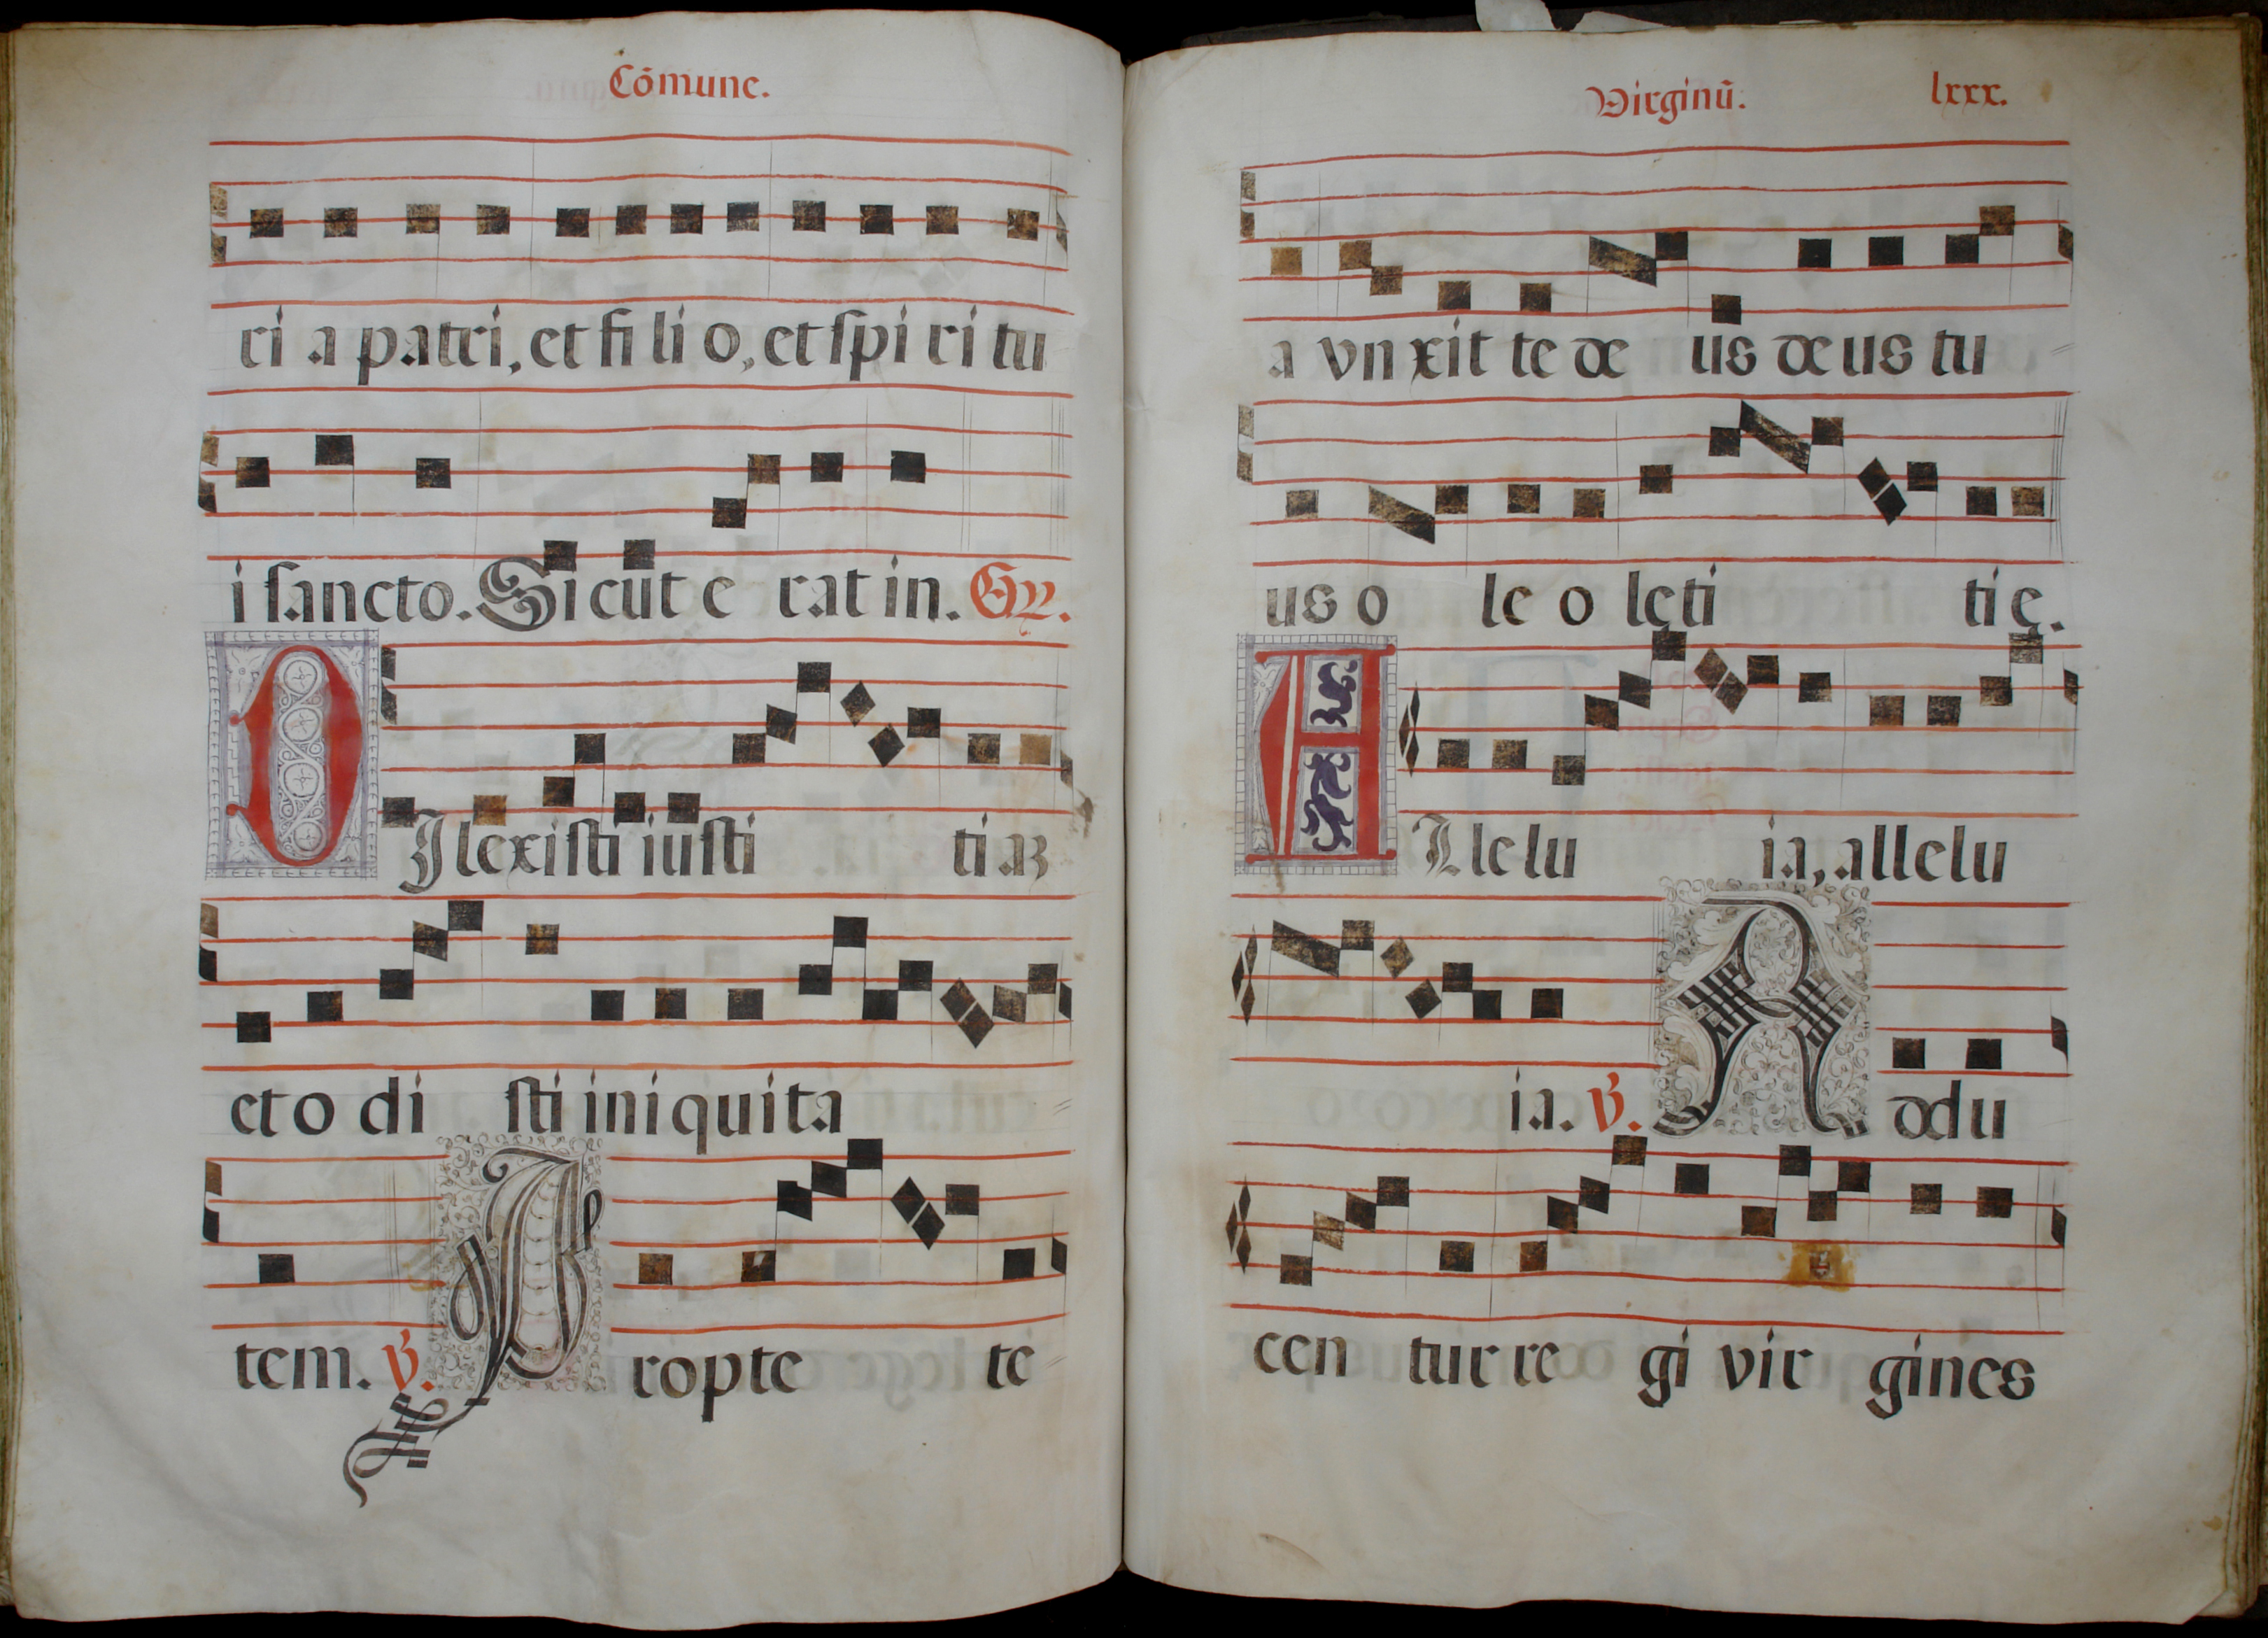 Cōmune.
ri a patri, et fi li o, et spi ri tu
i sancto. Sicut e rat in. Gr.
DIlexisti iusti ti aȝ
et o di sti iniquita
tem. V. Propte te
Virginū. lxxx.
a vnxit te de us deus tu
us o le o leti tię.
ALlelu ia, allelu
ia. V. Addu
cen tur re gi vir gines